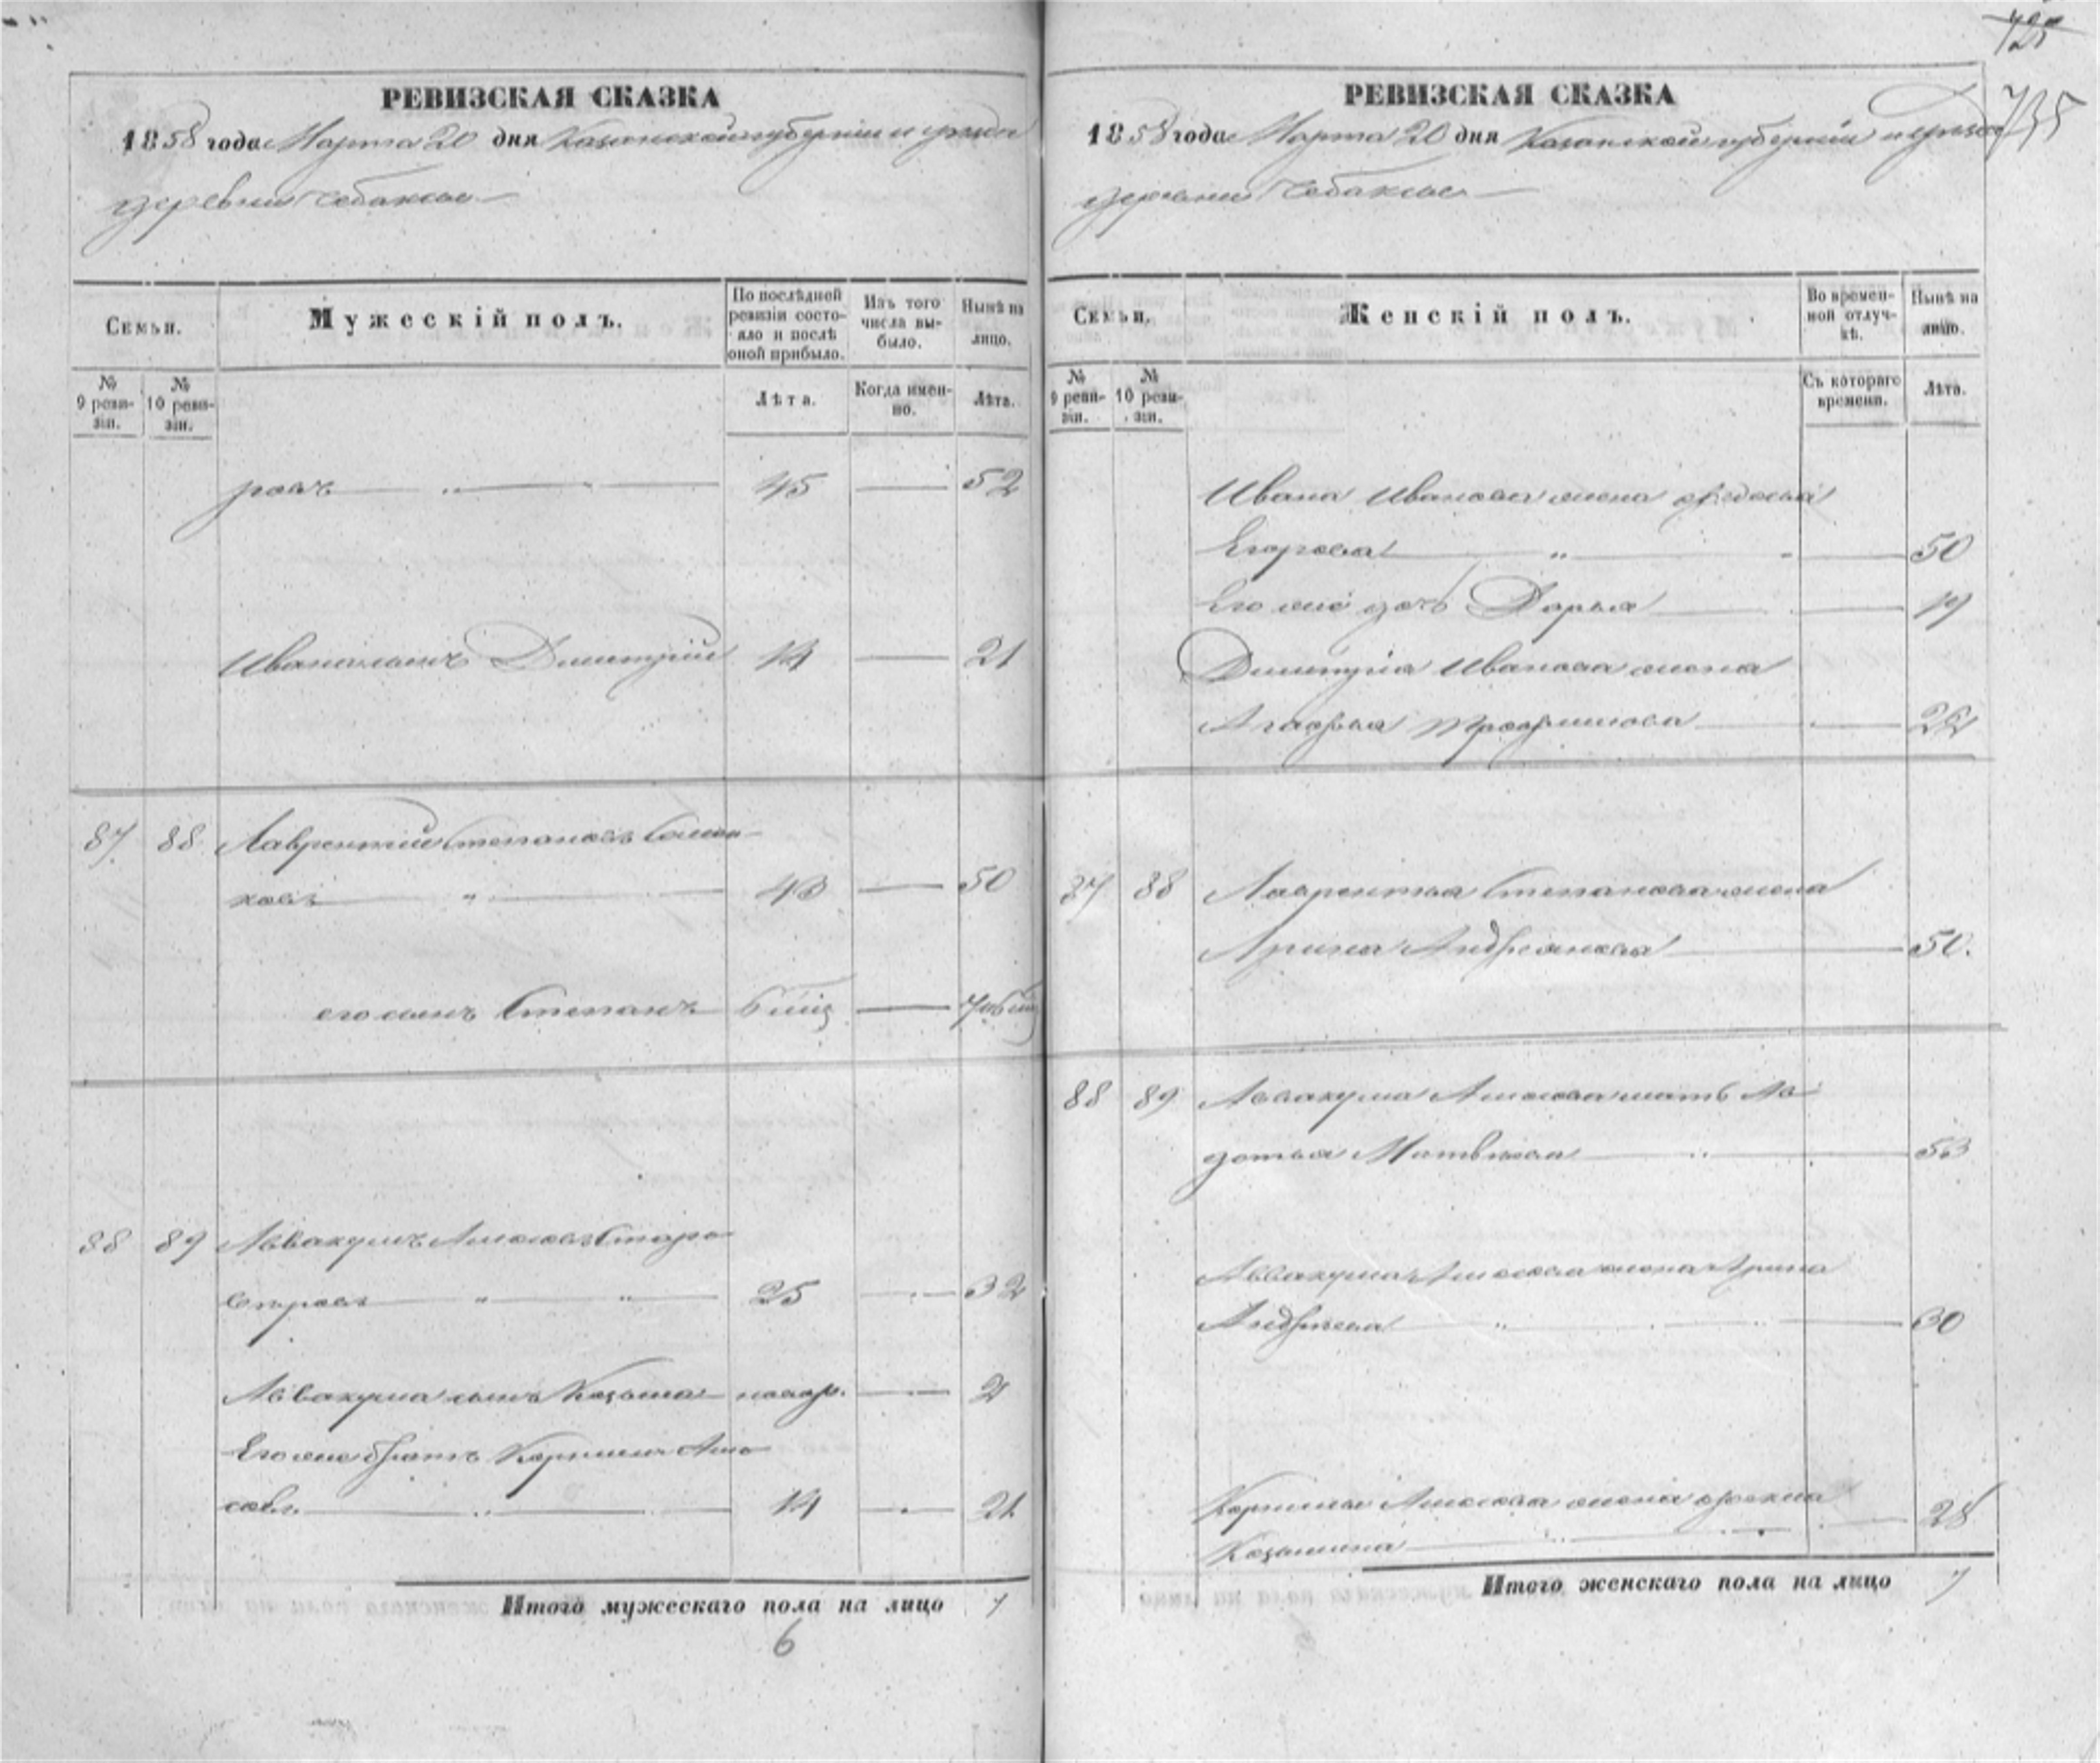 725
735
РЕВИЗСКАЯ СКАЗКА
1858 года Марта 20 дня Казанской губерніи и уезда
деревни Чебаксы
Семьи.
Мужескій полъ.
По послѣдней ревизіи состояло и послѣ оной прибыло.
Изъ того числа выбыло.
Нынѣ на лицо.
№ 9 ревизіи.
№ 10 ревизіи.
Лѣта.
Когда именно.
Лѣта.
ровъ 45 52
Ивана сынъ Димитрій 14 21
87 88 Лаврентій Степановъ
ковъ 43 50
его сынъ Степанъ 6 мц 7 и 6 мц
88 89 Аввакумъ Амосовъ Старо
25 32
Аввакума сынъ Козьма новор. 2
Его же братъ Карпилъ Амо
совъ 14 21
Итого мужескаго пола на лицо 7
6
РЕВИЗСКАЯ СКАЗКА
1858 года Марта 20 дня Казанской губерніи и уезда
деревни Чебаксы
Семьи.
Женскій полъ.
Во временной отлучкѣ.
Нынѣ на лицо.
№ 9 ревизіи.
№ 10 ревизіи.
Съ котораго времени.
Лѣта.
Ивана Иванова жена Федосья
Егорова 50
Его же дочь Дарья 19
Димитрія Иванова жена
Агафья Трофимова
87 88 Лаврентья Степанова жена
Арина Андреянова 50.
88 89 Аввакума Амосова мать Ав
дотья Матвѣева 53
Аввакума Амосова жена Арина
Андрѣева 30
Амосова жена Фекла
Козьмина 28
Итого женскаго пола на лицо 7